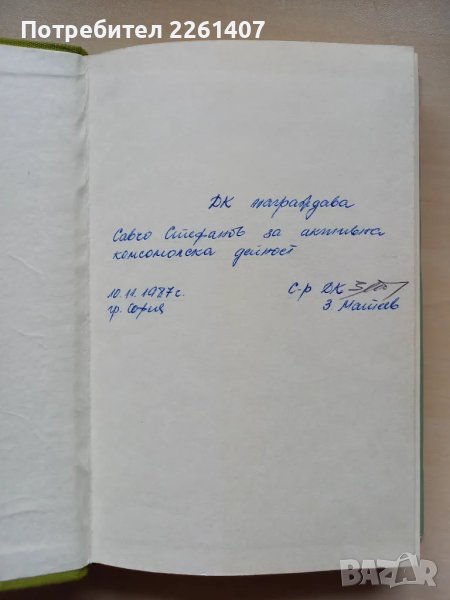 Потребител 2261407
ДК награждава
Савчо Стефанов за активна
комсомолска дейност
10.11.1987г.
гр. София
С-р ДК
З. Матев
BAZAR